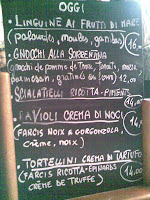 OGGI
• LINGUINE AI FRUTTI DI MARE
(palourdes, moules, gambas) 16,-
• GNOCCHI ALLA SORRENTINA
(gnocchi de pomme de terre, tomate,
parmesan, gratinés au four) 12,00
• SCIALATIELLI RICOTTA-PIMENTS
14,00
• RAVIOLI CREMA DI NOCI
(FARCIS NOIX & GORGONZOLA, 14,
CRÈME, NOIX)
• TORTELLINI CREMA DI TARTUFO
(FARCIS RICOTTA-EPINARDS 14,00
CRÈME DE TRUFFE)